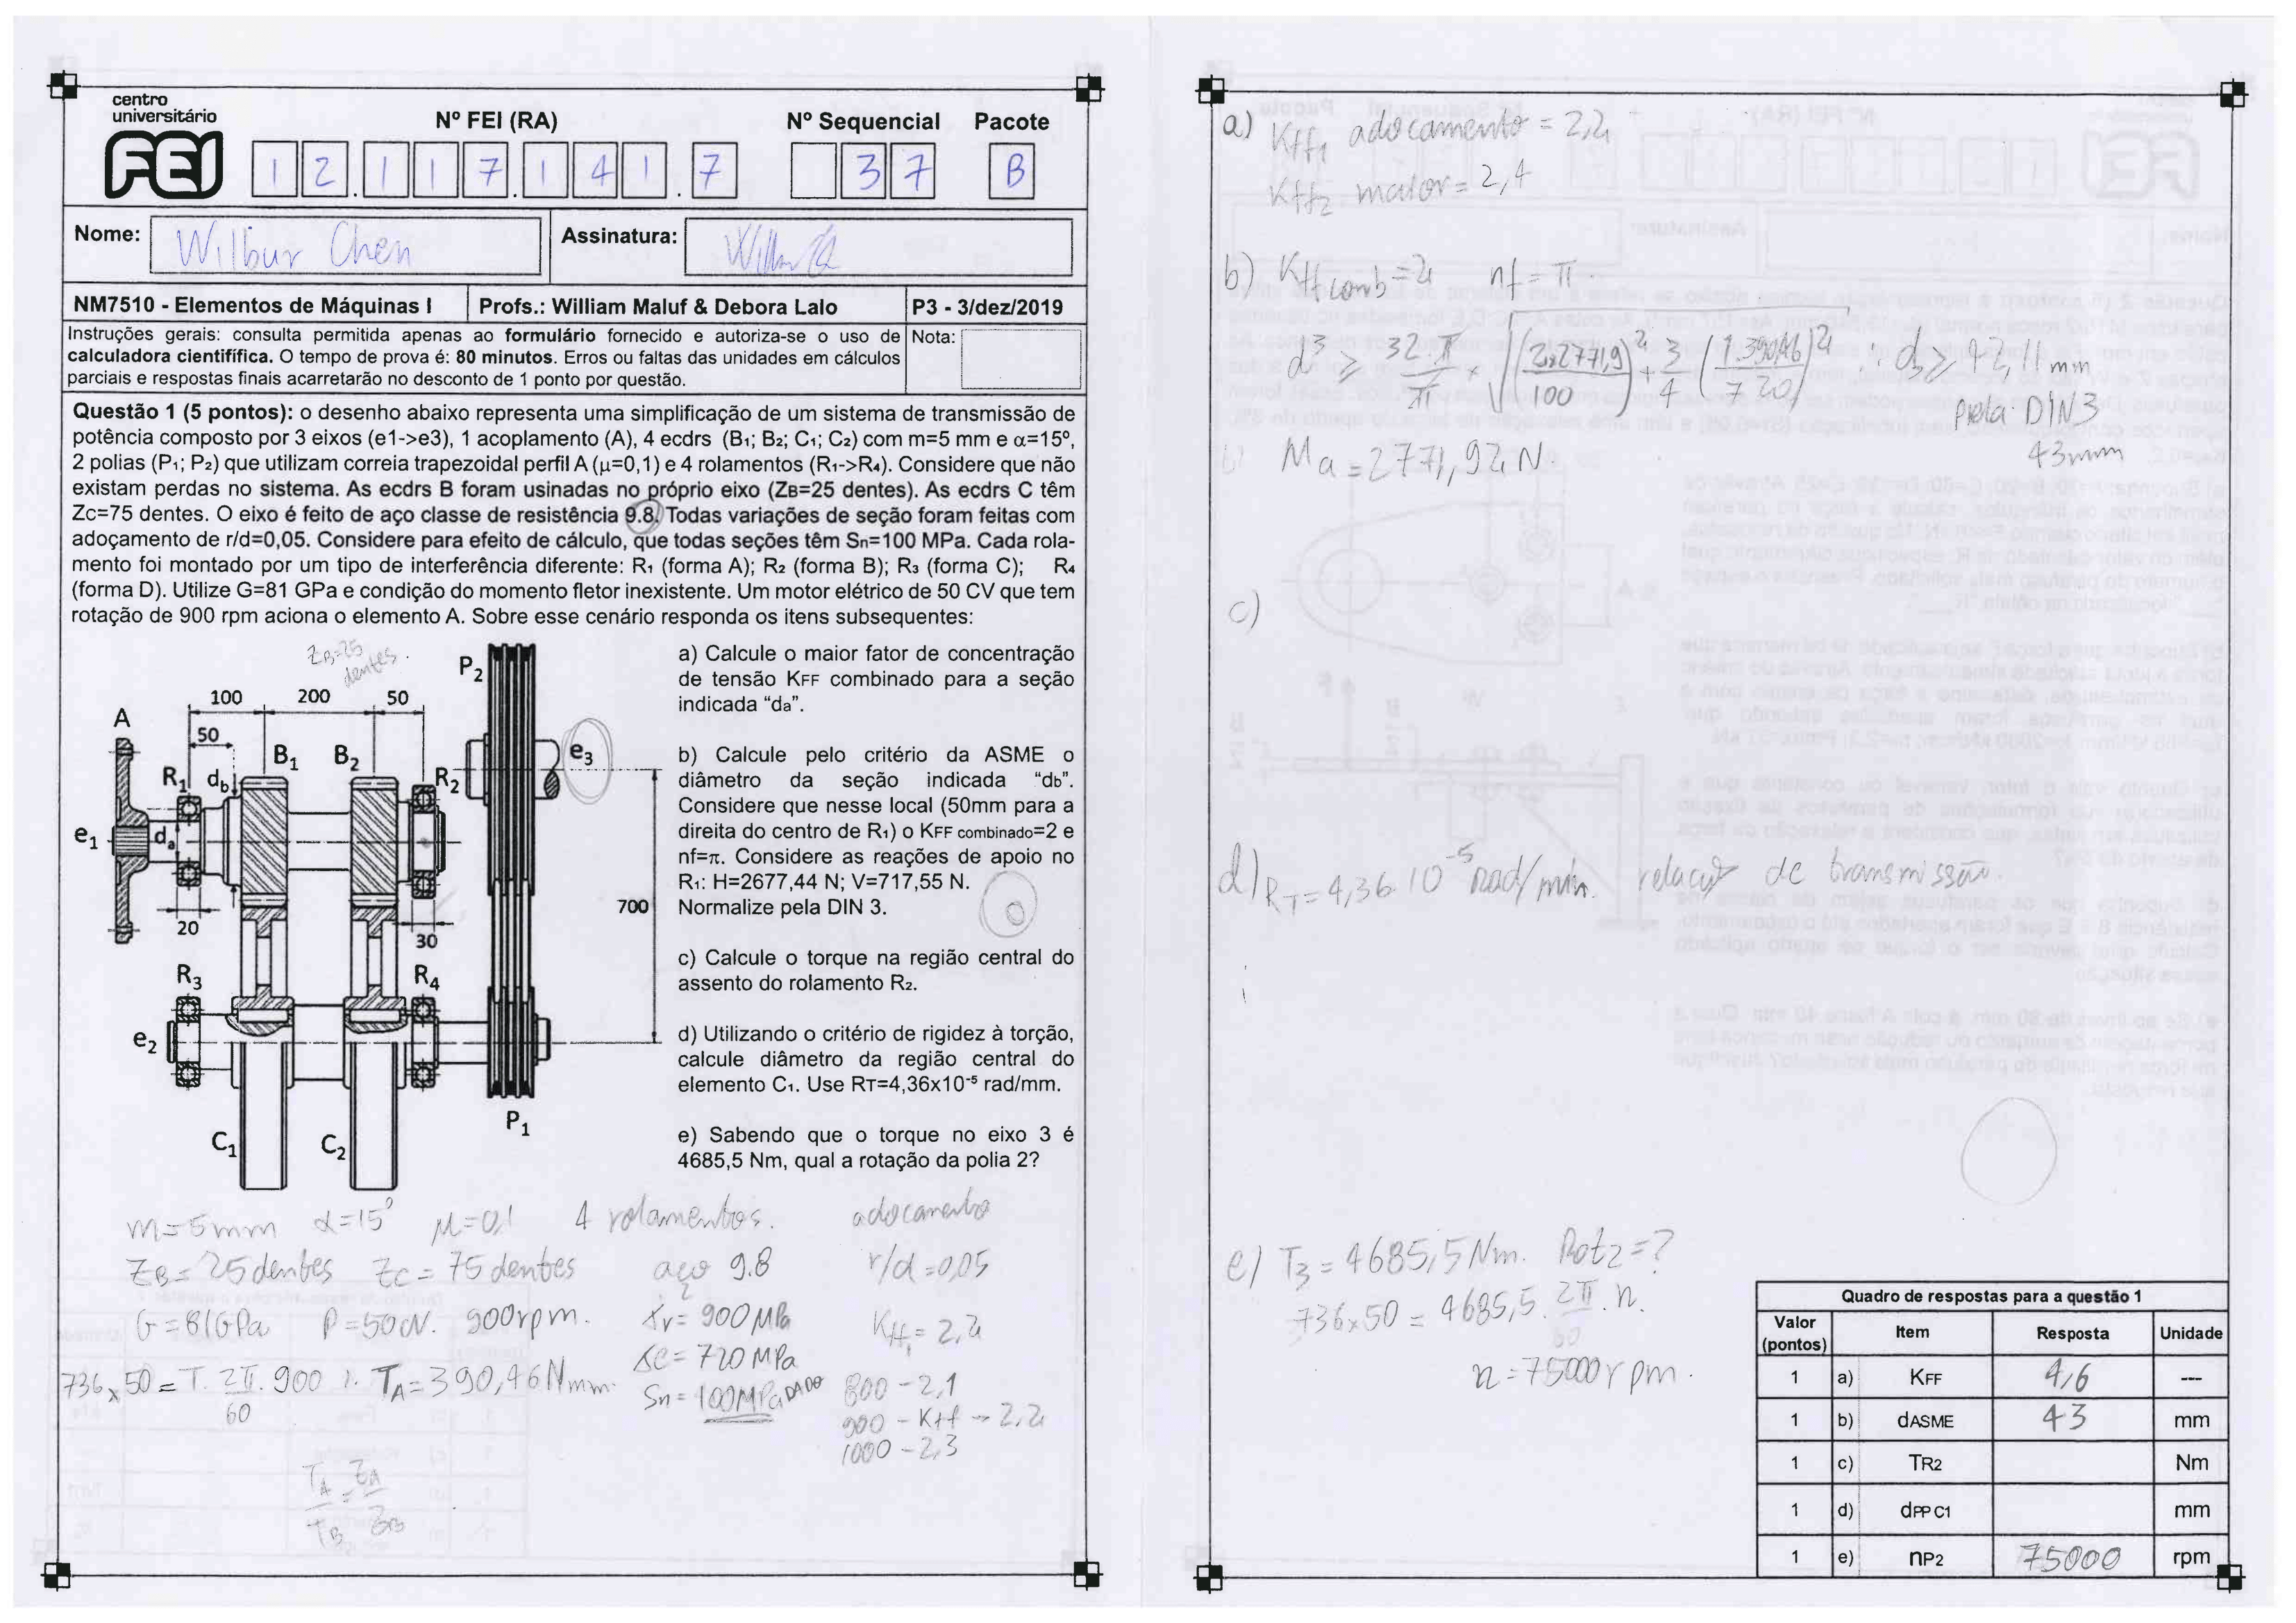 centro
universitário
FEI
Nº FEI (RA)
Nº Sequencial
Pacote
12.117.141.7
37
B
Nome:
Wilbur Chen
Assinatura:
NM7510 - Elementos de Máquinas I
Profs.: William Maluf & Debora Lalo
P3 - 3/dez/2019
Instruções gerais: consulta permitida apenas ao formulário fornecido e autoriza-se o uso de
calculadora cientifífica. O tempo de prova é: 80 minutos. Erros ou faltas das unidades em cálculos
parciais e respostas finais acarretarão no desconto de 1 ponto por questão.
Nota:
Questão 1 (5 pontos): o desenho abaixo representa uma simplificação de um sistema de transmissão de
potência composto por 3 eixos (e1->e3), 1 acoplamento (A), 4 ecdrs (B1; B2; C1; C2) com m=5 mm e α=15º,
2 polias (P1; P2) que utilizam correia trapezoidal perfil A (μ=0,1) e 4 rolamentos (R1->R4). Considere que não
existam perdas no sistema. As ecdrs B foram usinadas no próprio eixo (ZB=25 dentes). As ecdrs C têm
Zc=75 dentes. O eixo é feito de aço classe de resistência 9.8. Todas variações de seção foram feitas com
adoçamento de r/d=0,05. Considere para efeito de cálculo, que todas seções têm Sn=100 MPa. Cada rola-
mento foi montado por um tipo de interferência diferente: R1 (forma A); R2 (forma B); R3 (forma C); R4
(forma D). Utilize G=81 GPa e condição do momento fletor inexistente. Um motor elétrico de 50 CV que tem
rotação de 900 rpm aciona o elemento A. Sobre esse cenário responda os itens subsequentes:
ZB=25
dentes.
P2
100
200
50
A
50
B1
B2
e3
R1
db
R2
e1
da
700
20
30
R3
R4
e2
C1
C2
P1
a) Calcule o maior fator de concentração
de tensão KFF combinado para a seção
indicada “da”.
b) Calcule pelo critério da ASME o
diâmetro da seção indicada “db”.
Considere que nesse local (50mm para a
direita do centro de R1) o KFF combinado=2 e
nf=π. Considere as reações de apoio no
R1: H=2677,44 N; V=717,55 N.
Normalize pela DIN 3.
c) Calcule o torque na região central do
assento do rolamento R2.
d) Utilizando o critério de rigidez à torção,
calcule diâmetro da região central do
elemento C1. Use RT=4,36x10⁻⁵ rad/mm.
e) Sabendo que o torque no eixo 3 é
4685,5 Nm, qual a rotação da polia 2?
m=5mm α=15° μ=0,1 4 rolamentos. adocamento
ZB=25dentes ZC=75dentes aço 9.8 r/d=0,05
G=81GPa P=50CV. 900rpm. σr=900MPa Kff=2,2
σe=720MPa
736x50=T.2π/60.900 ∴ TA=390,46Nmm.
Sn=100MPa DADO
800-2,1
900-Kff→2,2
1000-2,3
TA/TB=ZA/ZB
a) Kff1 adocamento=2,2
Kff2 maior=2,4
b) Kff comb=2 nf=π
d³≥32.π/π x √(2x2771,9/100)²+3/4(1.390,46/720)² ∴ d≥42,11mm
Pela DIN3
43mm
Ma=2771,92N.
c)
d) RT=4,36.10⁻⁵ Rad/mm. relação de transmissão.
e) T3=4685,5Nm. Rot2=?
736x50=4685,5.2π/60.n.
n=75000rpm.
Quadro de respostas para a questão 1
Valor (pontos) Item Resposta Unidade
1 a) KFF 4,6 ---
1 b) dASME 43 mm
1 c) TR2 Nm
1 d) dPP C1 mm
1 e) nP2 75000 rpm